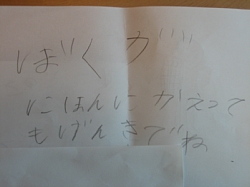 ぼくが
にほんにかえって
もげんきでね